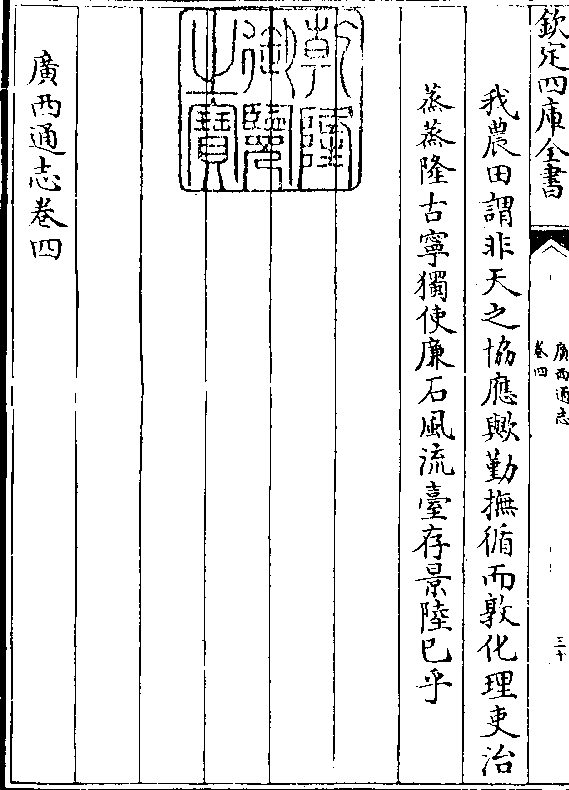 欽定四庫全書
廣西通志
卷四
三十
我農田謂非天之協應歟勤撫循而敦化理吏治
蒸蒸隆古寧獨使廉石風流臺存景陸已乎
乾隆
御覽
之寶
廣西通志卷四